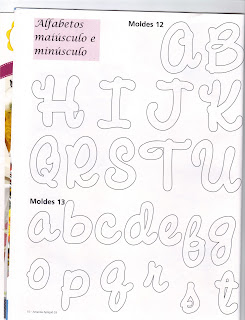 Alfabetos
maiúsculo e
minúsculo
Moldes 12
A B
H I J K
Q R S T U
Moldes 13
a b c d e f g
o p q r s t